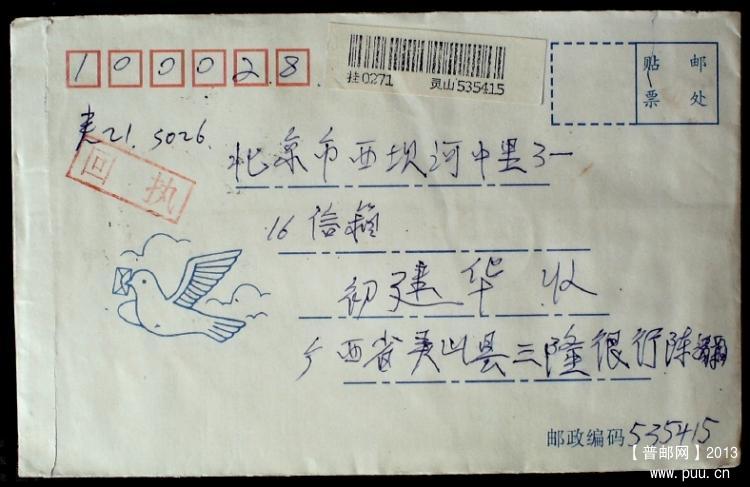 100028
挂0271 灵山535415
贴 邮
票 处
21. 5026.
回执
北京市西坝河中里3一
16信箱
初建华 收
广西省灵山县三隆银行陈
邮政编码535415
【普邮网】2013
www.puu.cn